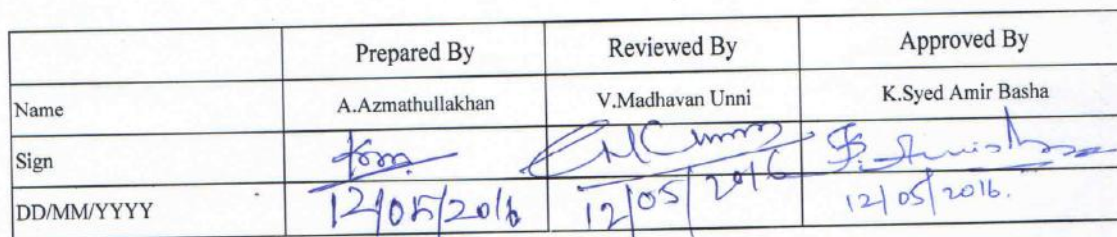 Prepared By Reviewed By Approved By
Name A.Azmathullakhan V.Madhavan Unni K.Syed Amir Basha
Sign
DD/MM/YYYY 12/05/2016 12/05/2016 12/05/2016.